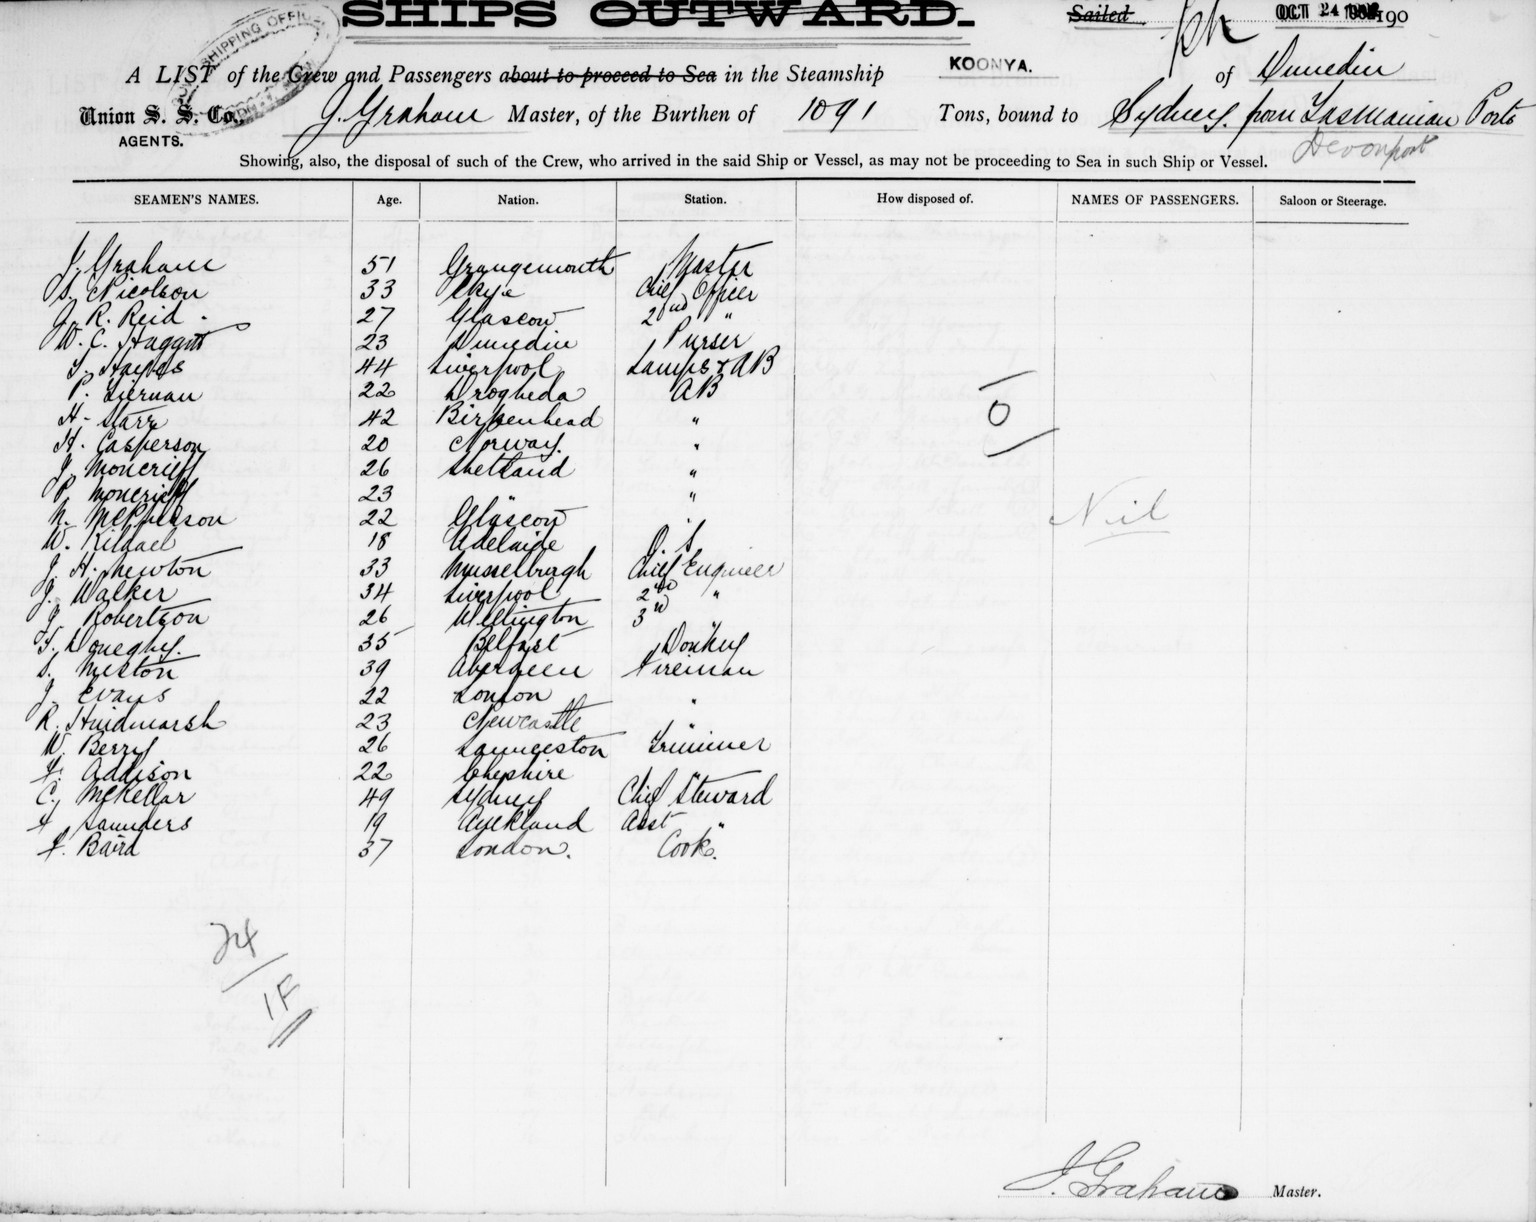 SHIPS OUTWARD.
SHIPPING OFFICE
Sailed OCT 24 190
A LIST of the Crew and Passengers about to proceed to Sea in the Steamship KOONYA. of Dunedin
Union S. S. Co., J. Graham Master, of the Burthen of 1091 Tons, bound to Sydney from Tasmanian Ports
AGENTS. Devonport
Showing, also, the disposal of such of the Crew, who arrived in the said Ship or Vessel, as may not be proceeding to Sea in such Ship or Vessel.
SEAMEN'S NAMES. Age. Nation. Station. How disposed of. NAMES OF PASSENGERS. Saloon or Steerage.
J. Graham 51 Grangemouth Master
S. Nicolson 33 Skye Chief Officer
J. R. Reid 27 Glascow 2nd "
W. C. Haggitt 23 Dunedin Purser
T. Haynes 44 Liverpool Lamps & AB
P. Tiernan 22 Drogheda AB
H. Starr 42 Birkenhead "
H. Casperson 20 Norway. "
J. Moncrieff 26 Shetland "
P. Moncrieff 23 " "
N. McPherson 22 Glascow "
W. 18 Adelaide O.S
J. H. Newton 33 Musselburgh Chief Engineer
J. Walker 34 Liverpool 2nd "
J. Robertson 26 Wellington 3rd "
35 Belfast Donkey
S. Meston 39 Aberdeen Fireman
J. Evans 22 London "
R. Hindmarsh 23 Newcastle "
W. Berry 26 Launceston Trimmer
F. Addison 22 Cheshire "
C. McKellar 49 Sydney Chief Steward
F. Saunders 19 Auckland Asst "
F. Baird 37 London. Cook.
O
Nil
24
1F
J. Graham Master.